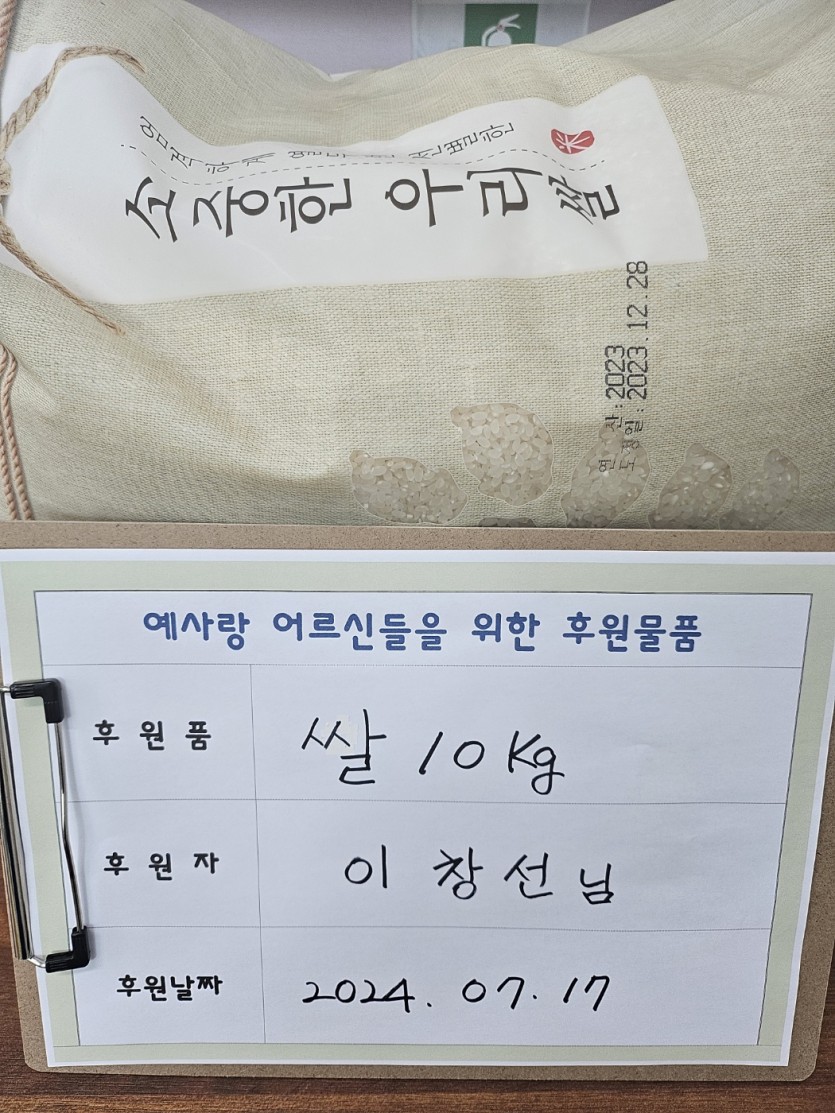 엄격하게 선별한
소중한 우리쌀
연 산:2023
도정일:2023.12.28
예사랑 어르신들을 위한 후원물품
후원품 쌀 10kg
후원자 이창선님
후원날짜 2024. 07. 17